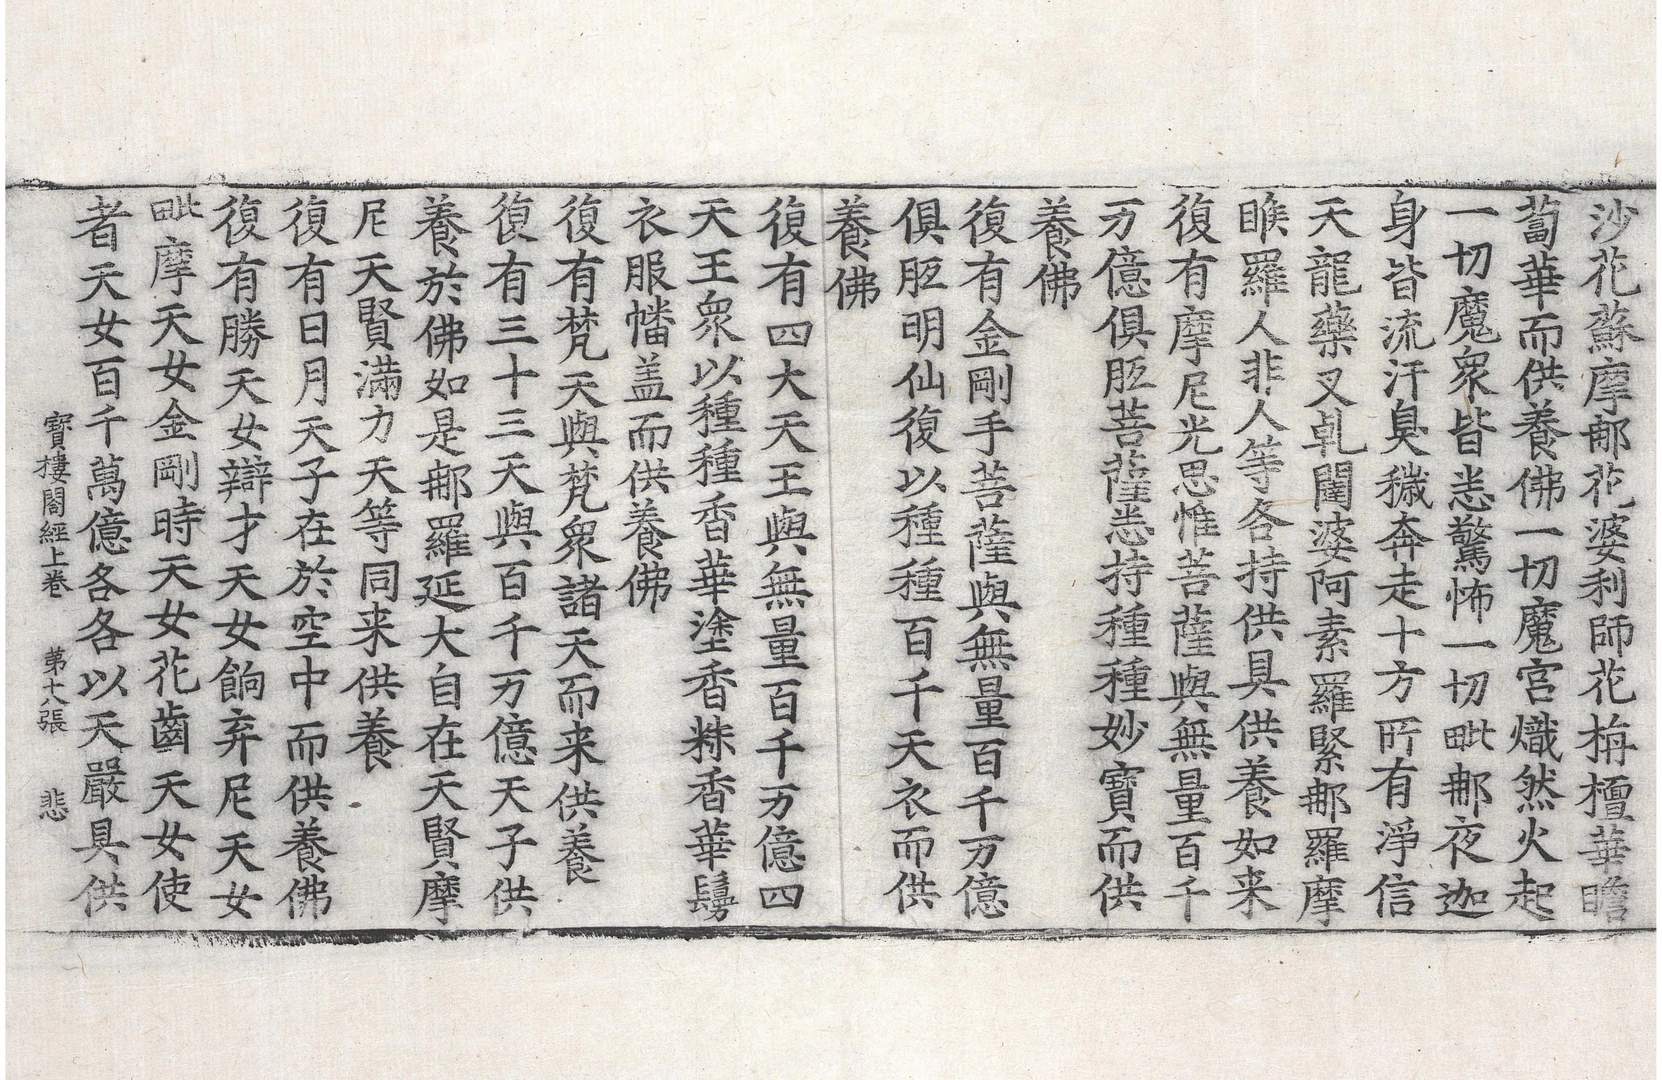 沙花蘇摩那花婆利師花栴檀華瞻
蔔華而供養佛一切魔宮熾然火起
一切魔衆皆悉驚怖一切毗那夜迦
身皆流汗臭穢奔走十方所有淨信
天龍藥叉乹闥婆阿素羅緊那羅摩
睺羅人非人等各持供具供養如来
復有摩尼光思惟菩薩與無量百千
万億俱胝菩薩悉持種種妙寶而供
養佛
復有金剛手菩薩與無量百千万億
俱胝明仙復以種種百千天衣而供
養佛
復有四大天王與無量百千万億四
天王衆以種種香華塗香粖香華鬘
衣服幡盖而供養佛
復有梵天與梵衆諸天而来供養
復有三十三天與百千万億天子供
養於佛如是那羅延大自在天賢摩
尼天賢滿力天等同来供養
復有日月天子在於空中而供養佛
復有勝天女辯才天女餉弃尼天女
毗摩天女金剛時天女花齒天女使
者天女百千萬億各各以天嚴具供
寶樓閣經上卷 第十八張 悲